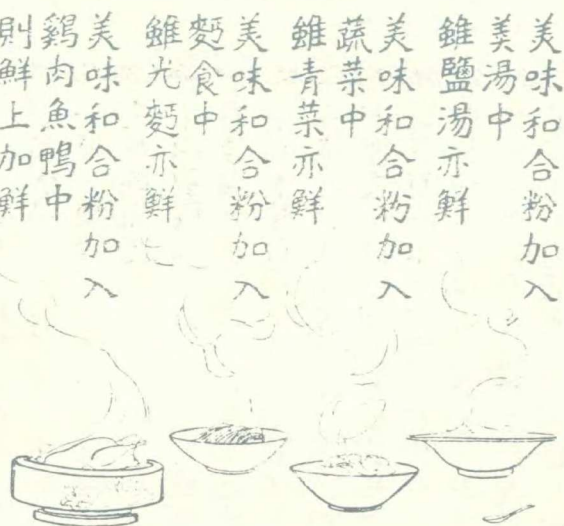 美味和合粉加入
羹湯中
雖鹽湯亦鮮
美味和合粉加入
蔬菜中
雖青菜亦鮮
美味和合粉加入
麪食中
雖光麪亦鮮
美味和合粉加入
鷄肉魚鴨中
則鮮上加鮮